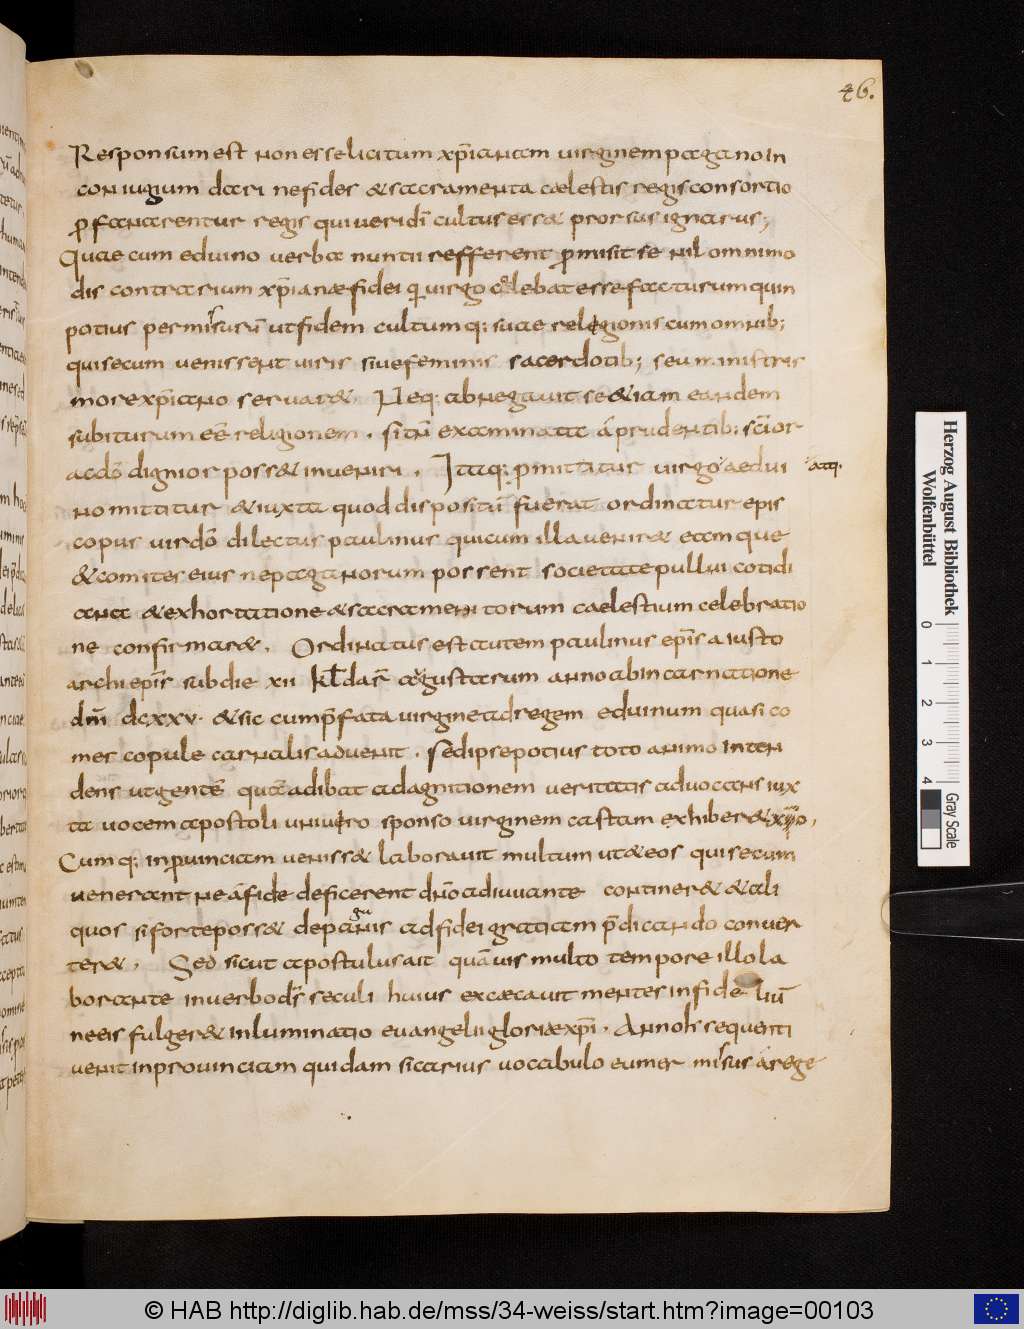 46.
Responsum est non esse licitum xp̄ianam virginem pagano in
coniugium dari ne fides & sacramenta cælestis regis consortio
ꝓfanarentur regis qui veri dī cultus ess& prorsus ignarus;
Quae cum eduino verba nuntii refferent promisit se nil omnimo
dis contrarium xp̄ianæ fidei q̄ virgo colebat esse facturum quin
potius permissurū ut fidem cultumq: suae relegionis cum omnib;
qui secum venissent viris sive feminis sacerdotib; seu ministris
more xp̄iano servar&. Neq: abnegavit se &iam eandem
subiturum eē religionem. si tn̄ examinata á prudentib: sc̄ior
ac dō dignior poss& inveniri. Itaq: promittitur virgo aedui
atq.
no mittitur & iuxta quod dispositū fuerat ordinatur epis
copus vir dō dilectus paulinus qui cum illa venir& eamque
& comites eius ne paganorum possent societate pollui cotidi
ana & exhortatione & sacramentorum caelestium celebratio
ne confirmar&. Ordinatus est autem paulinus ep̄is a iusto
archiep̄is sub die xii kl̄dar̄ agustarum anno ab incarnatione
dn̄i dcxxv. & sic cum p̄fata virgine ad regem eduinum quasi co
mes copule carnalis advenit. sed ipse potius toto animo inten
dens ut gentē quā adibat ad agnitionem veritatis advocans iux
ta vocem apostoli uni viro sponso virginem castam exhiber& xp̄o,
Cumq: in provinciam veniss& laboravit multum ut & eos qui secum
venerant ne á fide deficerent dn̄o adiuvante contineret & ali
quos si forte poss& de paganis ad fidei gratiam p̄dicando conver
ter&. Sed sicut apostulus ait quāvis multo tempore illo la
borante in verbo d̄s seculi huius excæcavit mentes infideliū
ne eis fulger& inluminatio evangelii gloriæ xp̄i. Anno h sequenti
venit in provinciam quidam sicarius vocabulo eumer missus á rege
Herzog August Bibliothek
Wolfenbüttel
0 1 2 3 4
Gray Scale
© HAB http://diglib.hab.de/mss/34-weiss/start.htm?image=00103